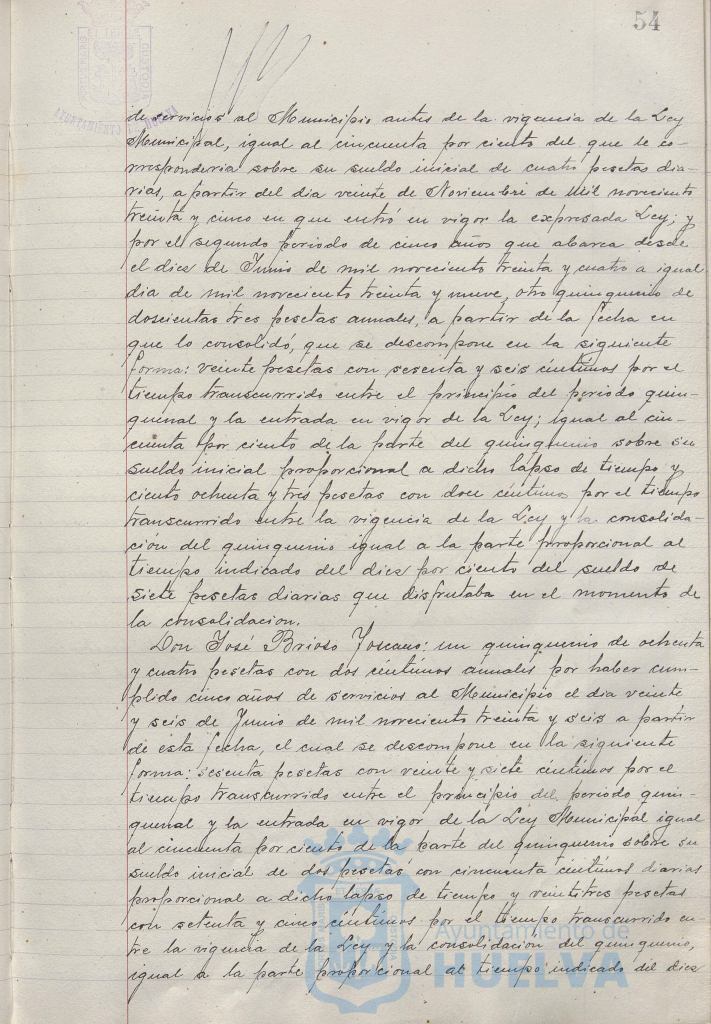 54
de servicios al Municipio antes de la vigencia de la Ley
Municipal, igual al cincuenta por ciento del que le co-
rresponderia sobre su sueldo inicial de cuatro pesetas dia-
rias, a partir del dia veinte de Noviembre de mil novecientos
treinta y cinco en que entró en vigor la expresada Ley; y
por el segundo periodo de cinco años que abarca desde
el diez de Junio de mil noveciento treinta y cuatro a igual
dia de mil noveciento treinta y nueve, otro quinquenio de
doscientas tres pesetas anuales, a partir de la fecha en
que lo consolidó, que se descompone en la siguiente
forma: veinte pesetas con sesenta y seis céntimos por el
tiempo transcurrido entre el principio del periodo quin-
quenal y la entrada en vigor de la Ley; igual al cin-
cuenta por ciento de la parte del quinquenio sobre su
sueldo inicial proporcional a dicho lapso de tiempo y
ciento ochenta y tres pesetas con doce céntimos por el tiempo
transcurrido entre la vigencia de la Ley y la consolida-
ción del quinquenio igual a la parte proporcional al
tiempo indicado del diez por ciento del sueldo de
siete pesetas diarias que disfrutaba en el momento de
la consolidacion.
Don José Brioso Toscano: un quinquenio de ochenta
y cuatro pesetas con dos céntimos anuales por haber cum-
plido cinco años de servicios al Municipio el dia veinte
y seis de Junio de mil noveciento treinta y seis a partir
de esta fecha, el cual se descompone en la siguiente
forma: sesenta pesetas con veinte y siete céntimos por el
tiempo transcurrido entre el principio del periodo quin-
quenal y la entrada en vigor de la Ley Municipal igual
al cincuenta por ciento de la parte del quinquenio sobre su
sueldo inicial de dos pesetas con cincuenta céntimos diarias
proporcional a dicho lapso de tiempo y veintitres pesetas
con setenta y cinco céntimos por el tiempo transcurrido en-
tre la vigencia de la Ley y la consolidacion del quinquenio,
igual a la parte proporcional al tiempo indicado del diez
Ayuntamiento de
HUELVA